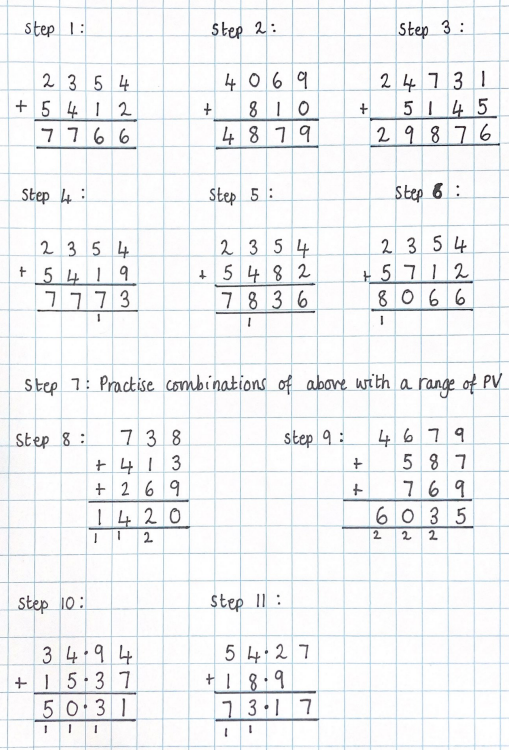 Step 1:
2 3 5 4
+ 5 4 1 2
7 7 6 6
Step 2:
4 0 6 9
+ 8 1 0
4 8 7 9
Step 3:
2 4 7 3 1
+ 5 1 4 5
2 9 8 7 6
Step 4:
2 3 5 4
+ 5 4 1 9
7 7 7 3
1
Step 5:
2 3 5 4
+ 5 4 8 2
7 8 3 6
1
Step 6:
2 3 5 4
+ 5 7 1 2
8 0 6 6
1
Step 7: Practise combinations of above with a range of PV
Step 8:
7 3 8
+ 4 1 3
+ 2 6 9
1 4 2 0
1 1 2
Step 9:
4 6 7 9
+ 5 8 7
+ 7 6 9
6 0 3 5
2 2 2
Step 10:
3 4 . 9 4
+ 1 5 . 3 7
5 0 . 3 1
1 1 1
Step 11:
5 4 . 2 7
+ 1 8 . 9
7 3 . 1 7
1 1